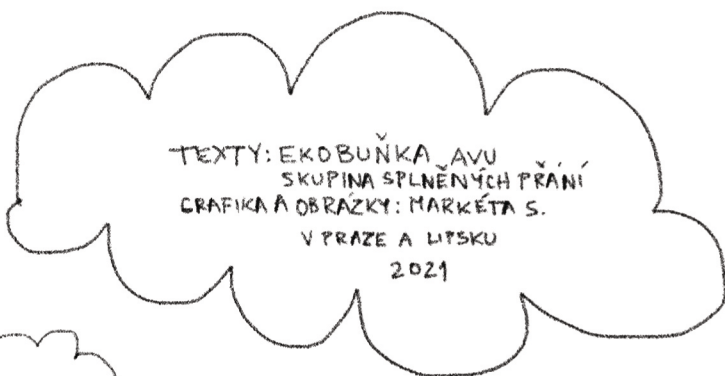 TEXTY: EKOBUŇKA AVU
SKUPINA SPLNĚNÝCH PŘÁNÍ
GRAFIKA A OBRÁZKY: MARKÉTA S.
V PRAZE A LIPSKU
2021